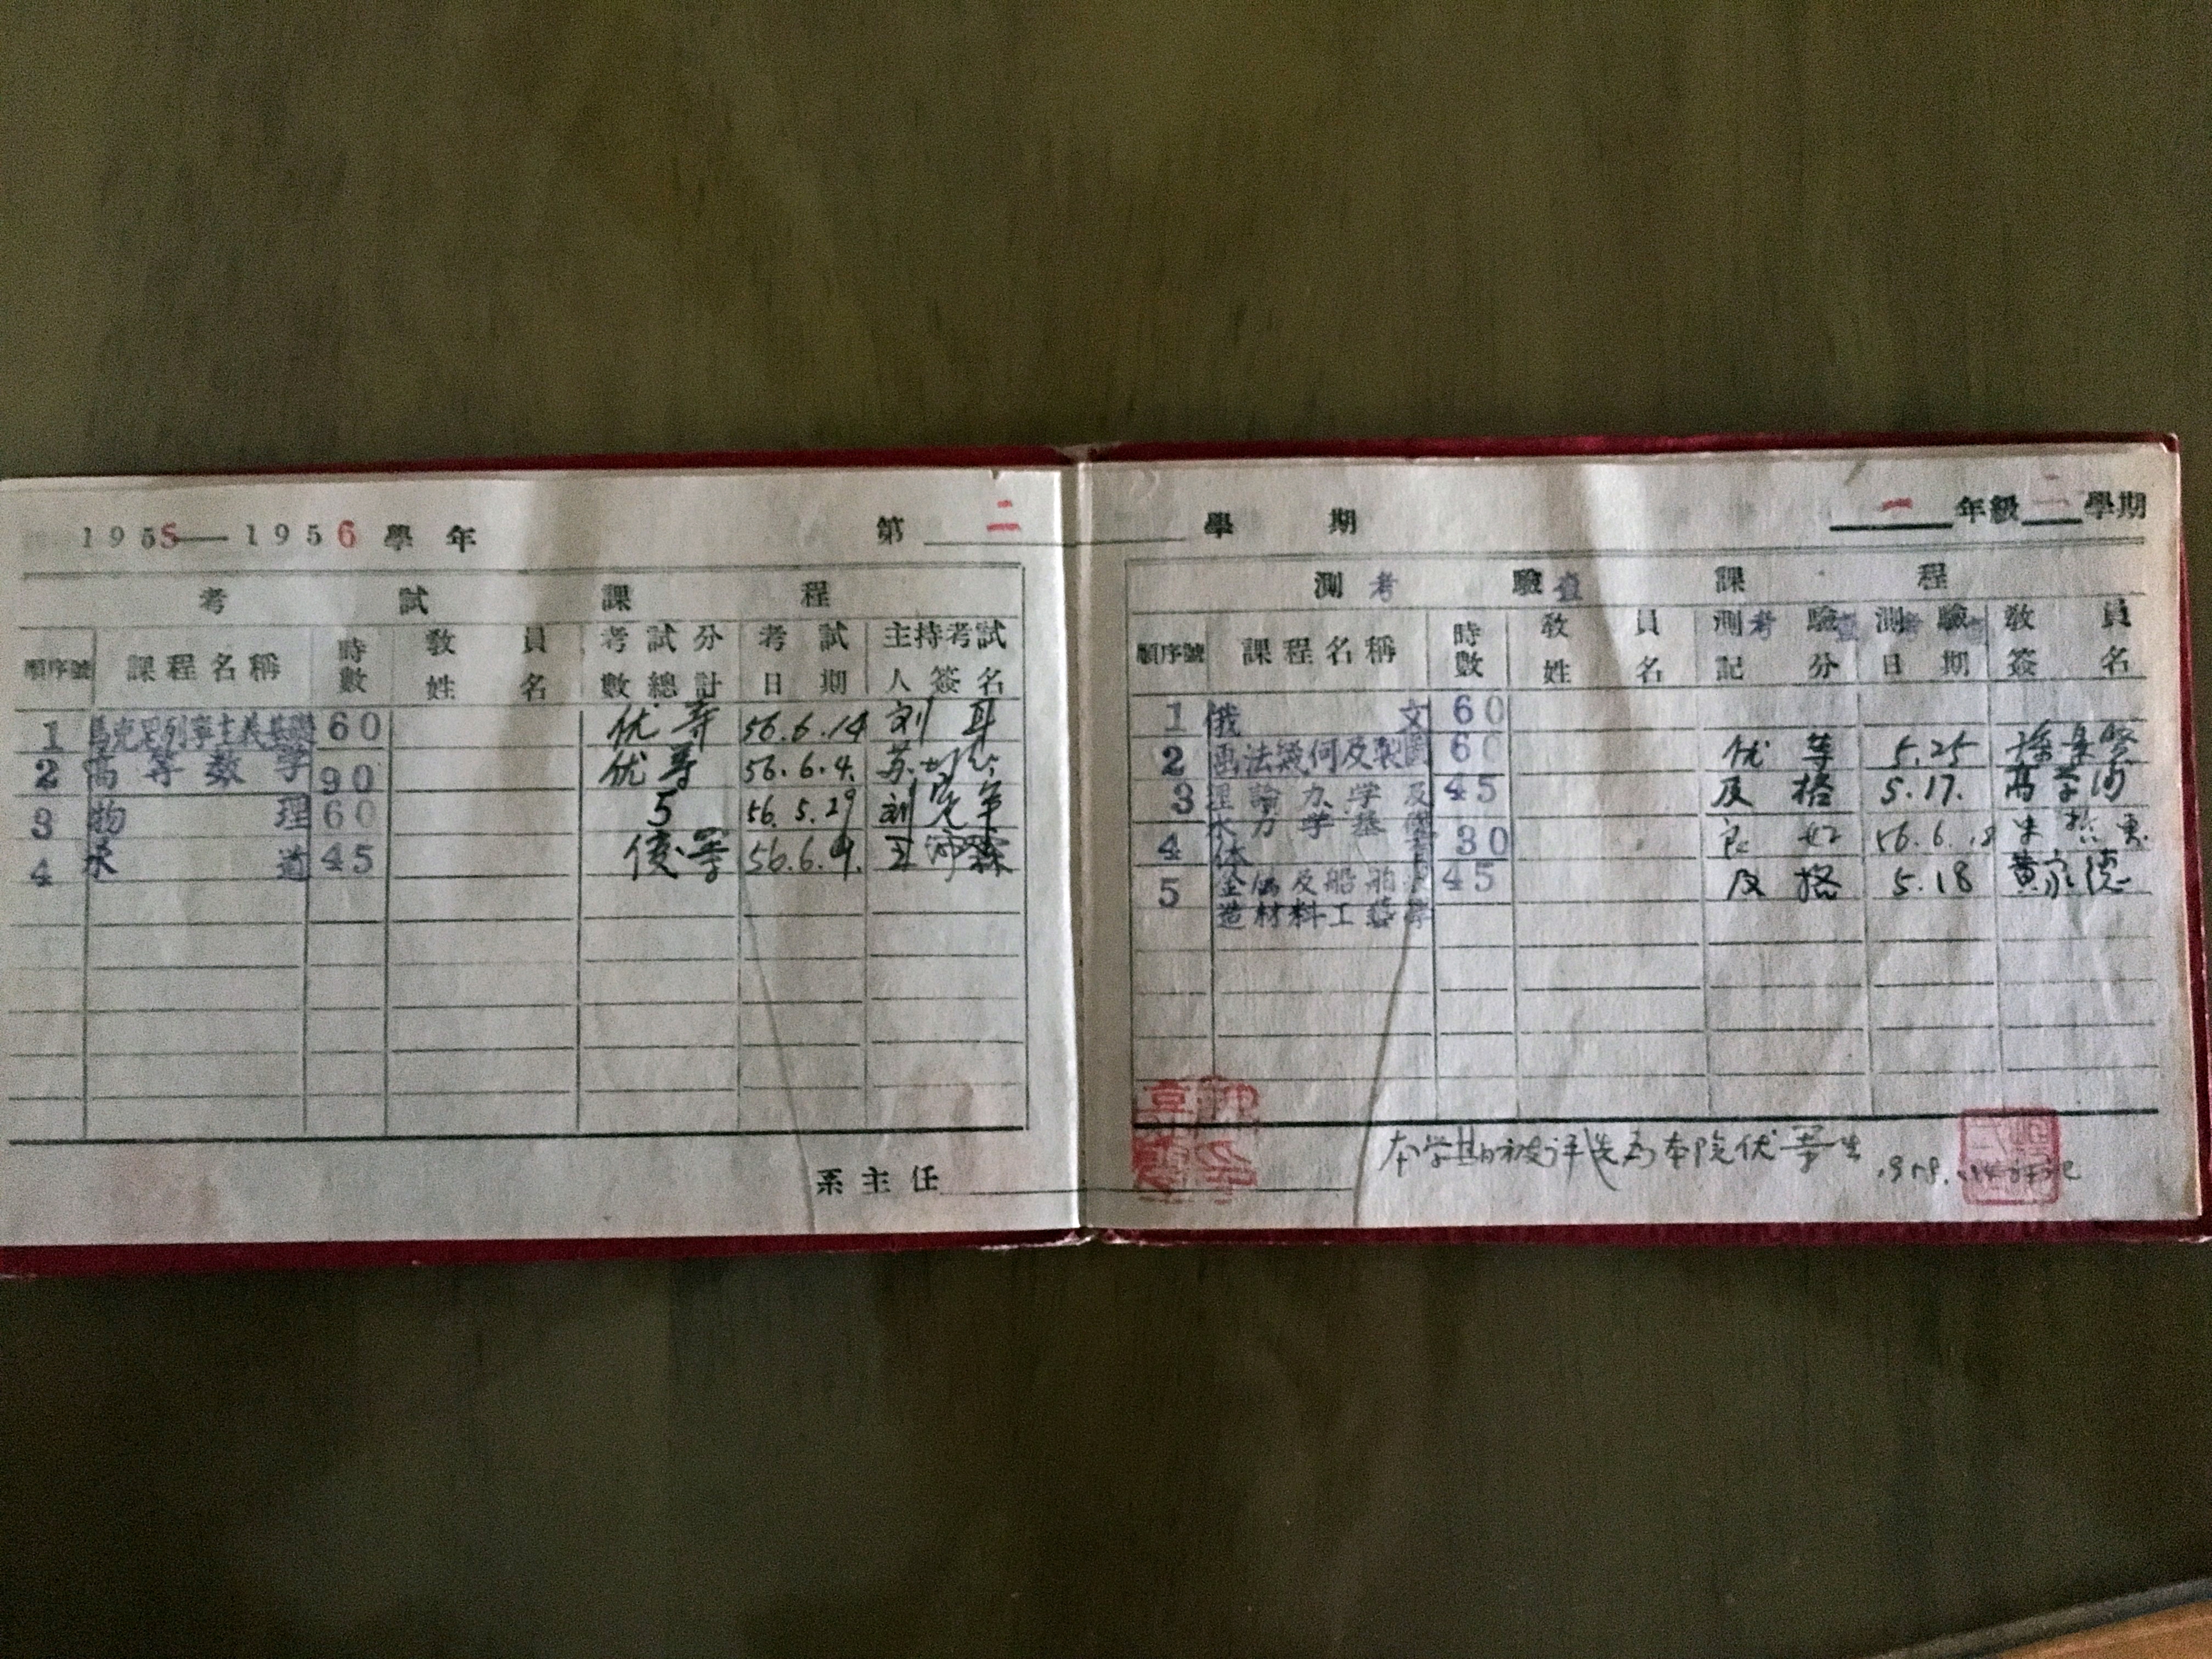 1955—1956 學年 第二
考試課程
順序號 課程名稱 時數 教員姓名 考試分數總計 考試日期 主持考試人簽名
1 馬克思列寧主義基礎 60 优等 56.6.14
2 高等数学 90 优等 56.6.4.
3 物理 60 5 56.5.29
4 水道 45 優等 56.6.9.
系主任
學期 一年級二學期
測考驗查課程
順序號 課程名稱 時數 教員姓名 測考驗查記分 測考驗查日期 教員簽名
1 俄文 60
2 画法幾何及製圖 60 优等 5.25
3 理論力学及水力学基礎 45 及格 5.17. 高学
4 体育 30 良好 56.6.18
5 金屬及船舶製造材料工藝學 45 及格 5.18 黄家德
本学期被评选为本院优等生